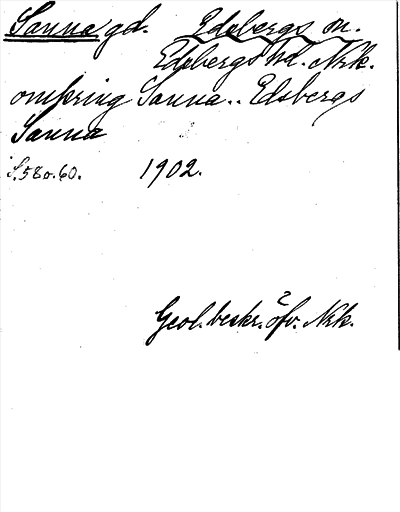 Sanna gd. Edsbergs sn.
Edsbergs hd. Nrk.
omkring Sanna.. Edsbergs
Sanna
S. 58 o. 60. 1902.
2
Geol. beskr. öfv. Nrk.